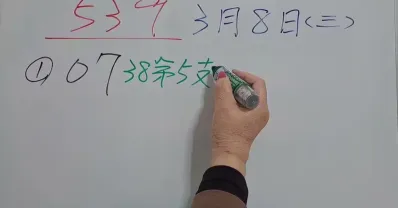 539 3月8日(三)
① 07 38第5支